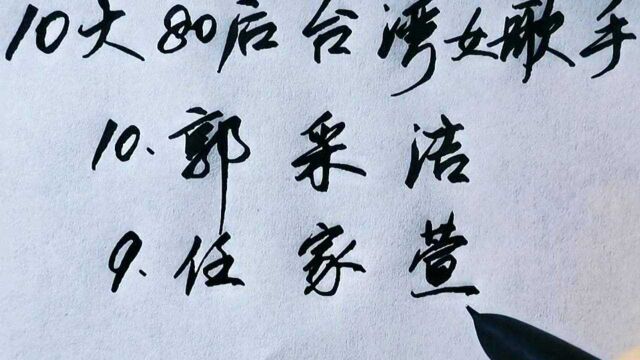 10大80后台湾女歌手
10.郭采洁
9.任家萱